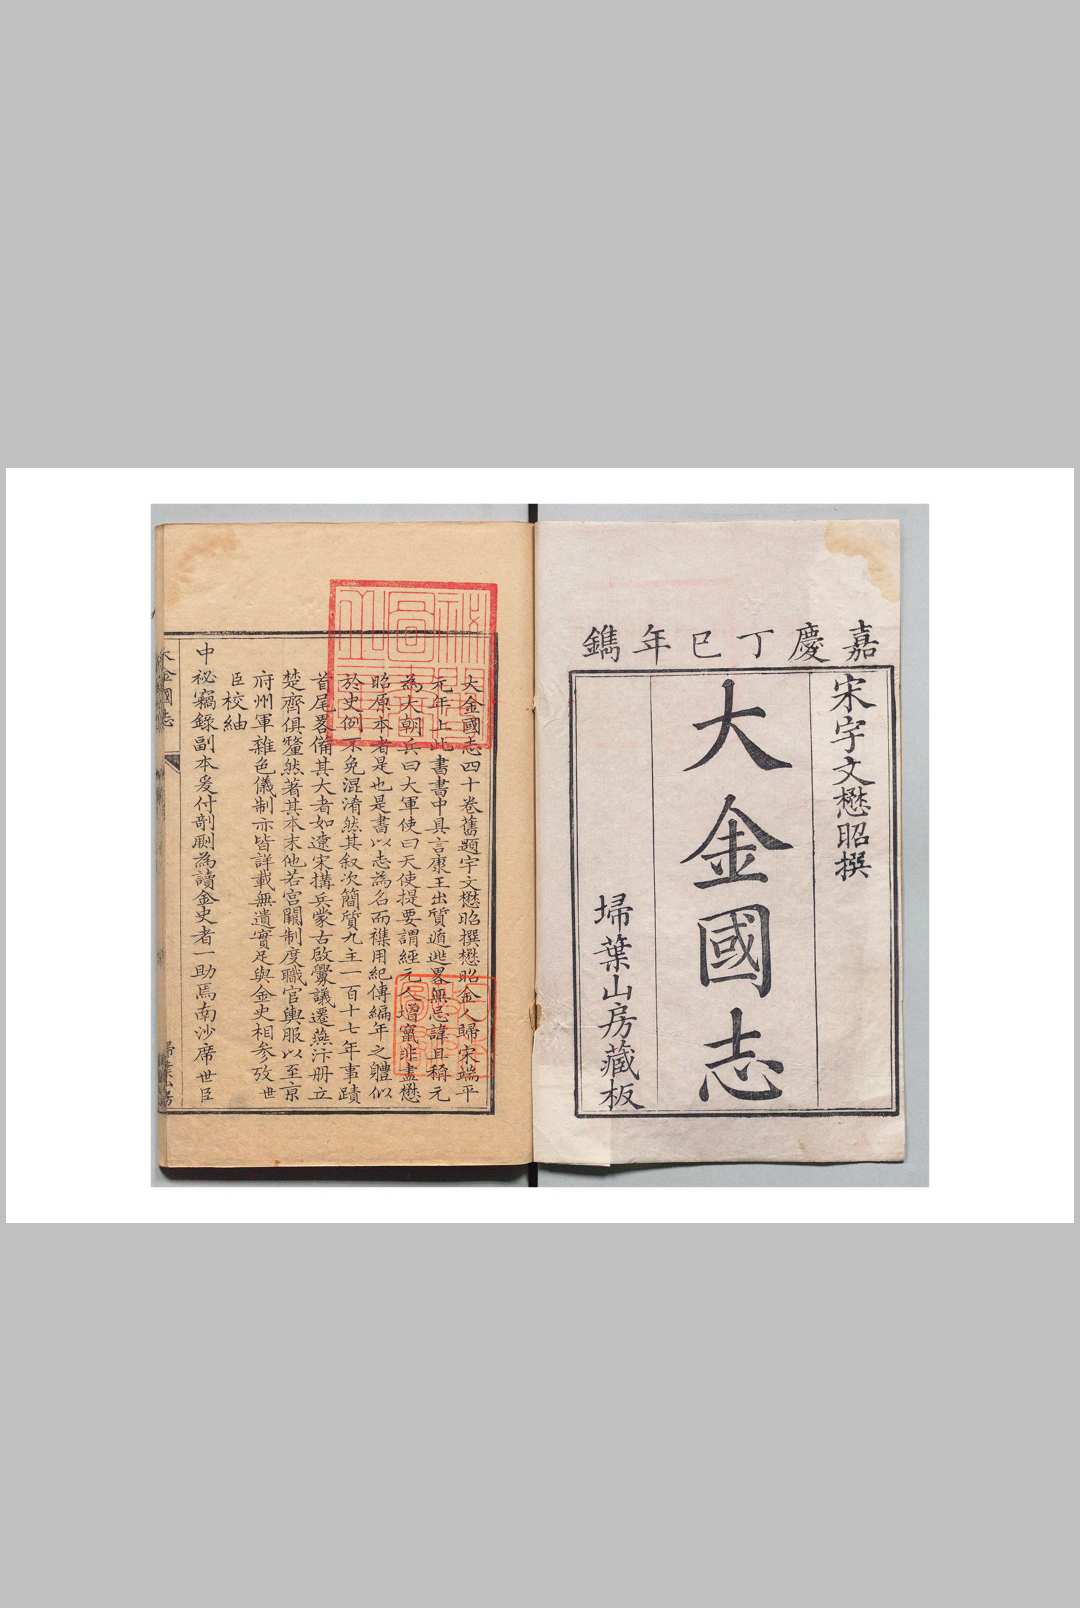 嘉慶丁巳年鐫
宋宇文懋昭撰
大金國志
掃葉山房藏板
大金國志四十卷舊題宇文懋昭撰懋昭金人歸宋端平
元年上此書書中具言康王出質遁逃畧無忌諱且稱元
為大朝兵曰大軍使曰天使提要謂經元人增竄非盡懋
昭原本者是也是書以志為名而襍用紀傳編年之軆似
於史例不免混淆然其叙次簡質九主一百十七年事蹟
首尾畧備其大者如遼宋搆兵蒙古啟釁議遷燕汴册立
楚齊俱釐然著其本末他若宮闕制度職官輿服以至京
府州軍雜色儀制亦皆詳載無遺實足與金史相參攷世
臣校紬
中祕竊錄副本爰付剞劂為讀金史者一助焉南沙席世臣
大金國志
掃葉山房